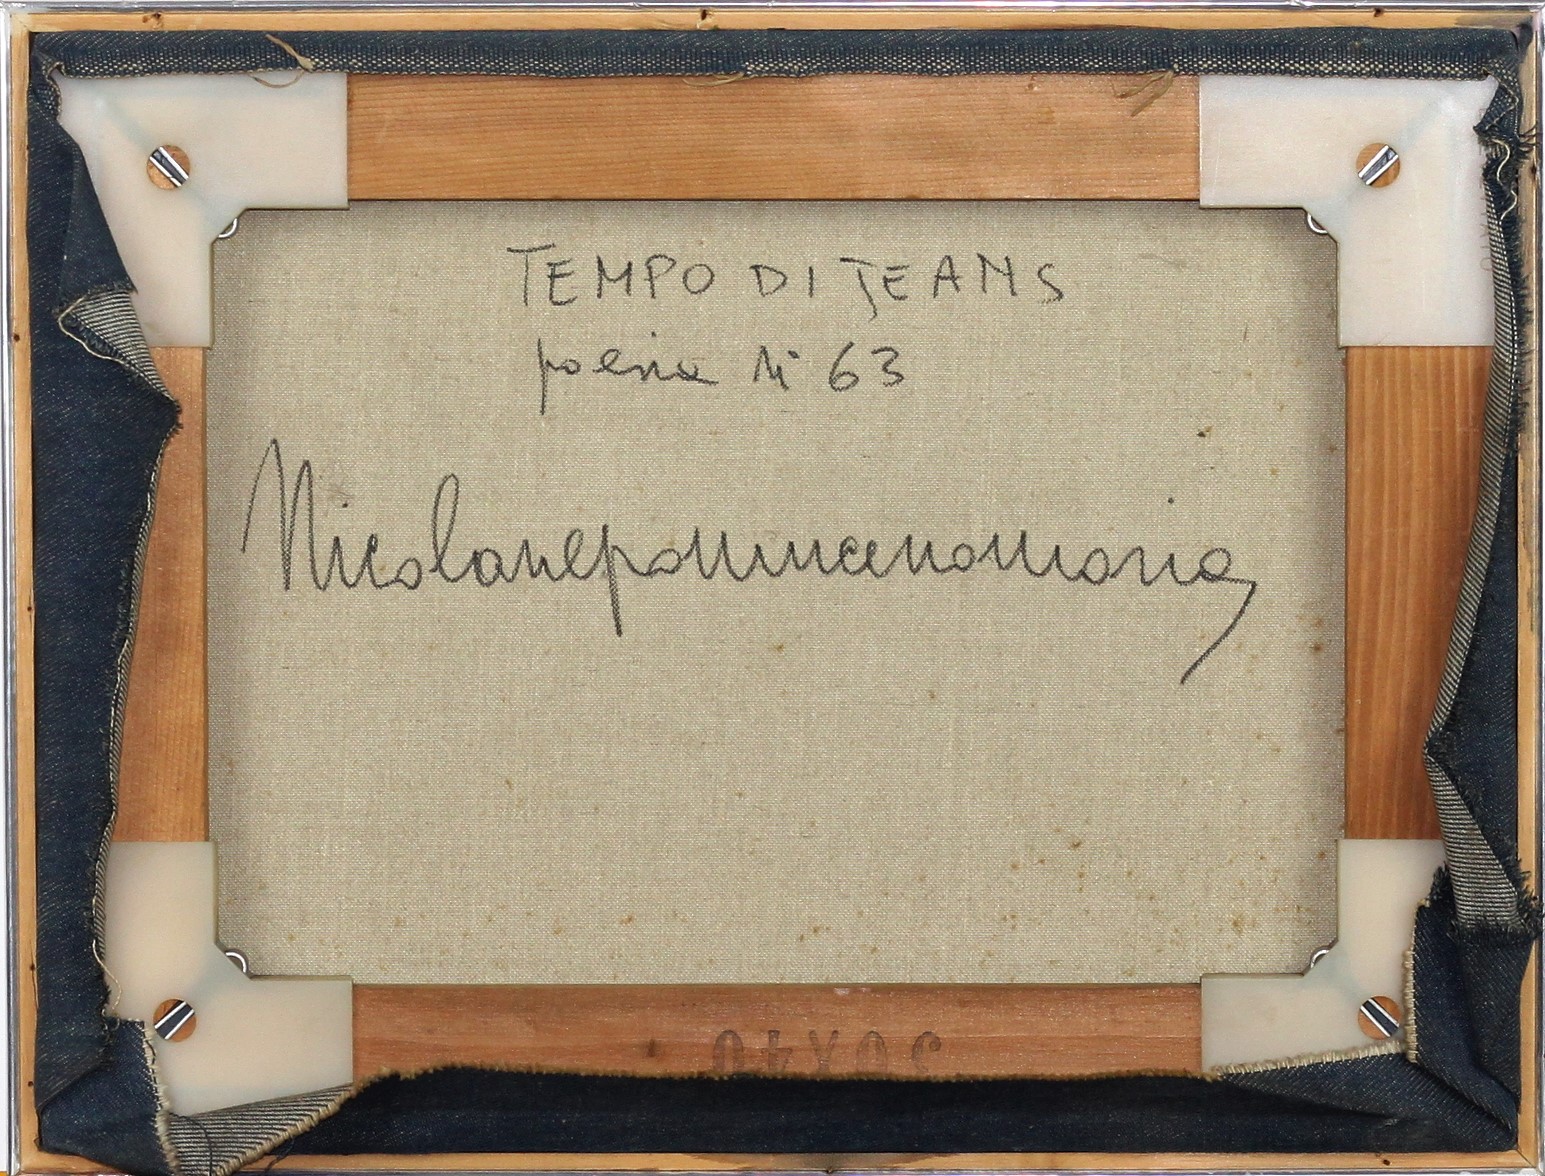 TEMPO DI JEANS
poesia N° 63
Nicolanepomucenomaria
30X40